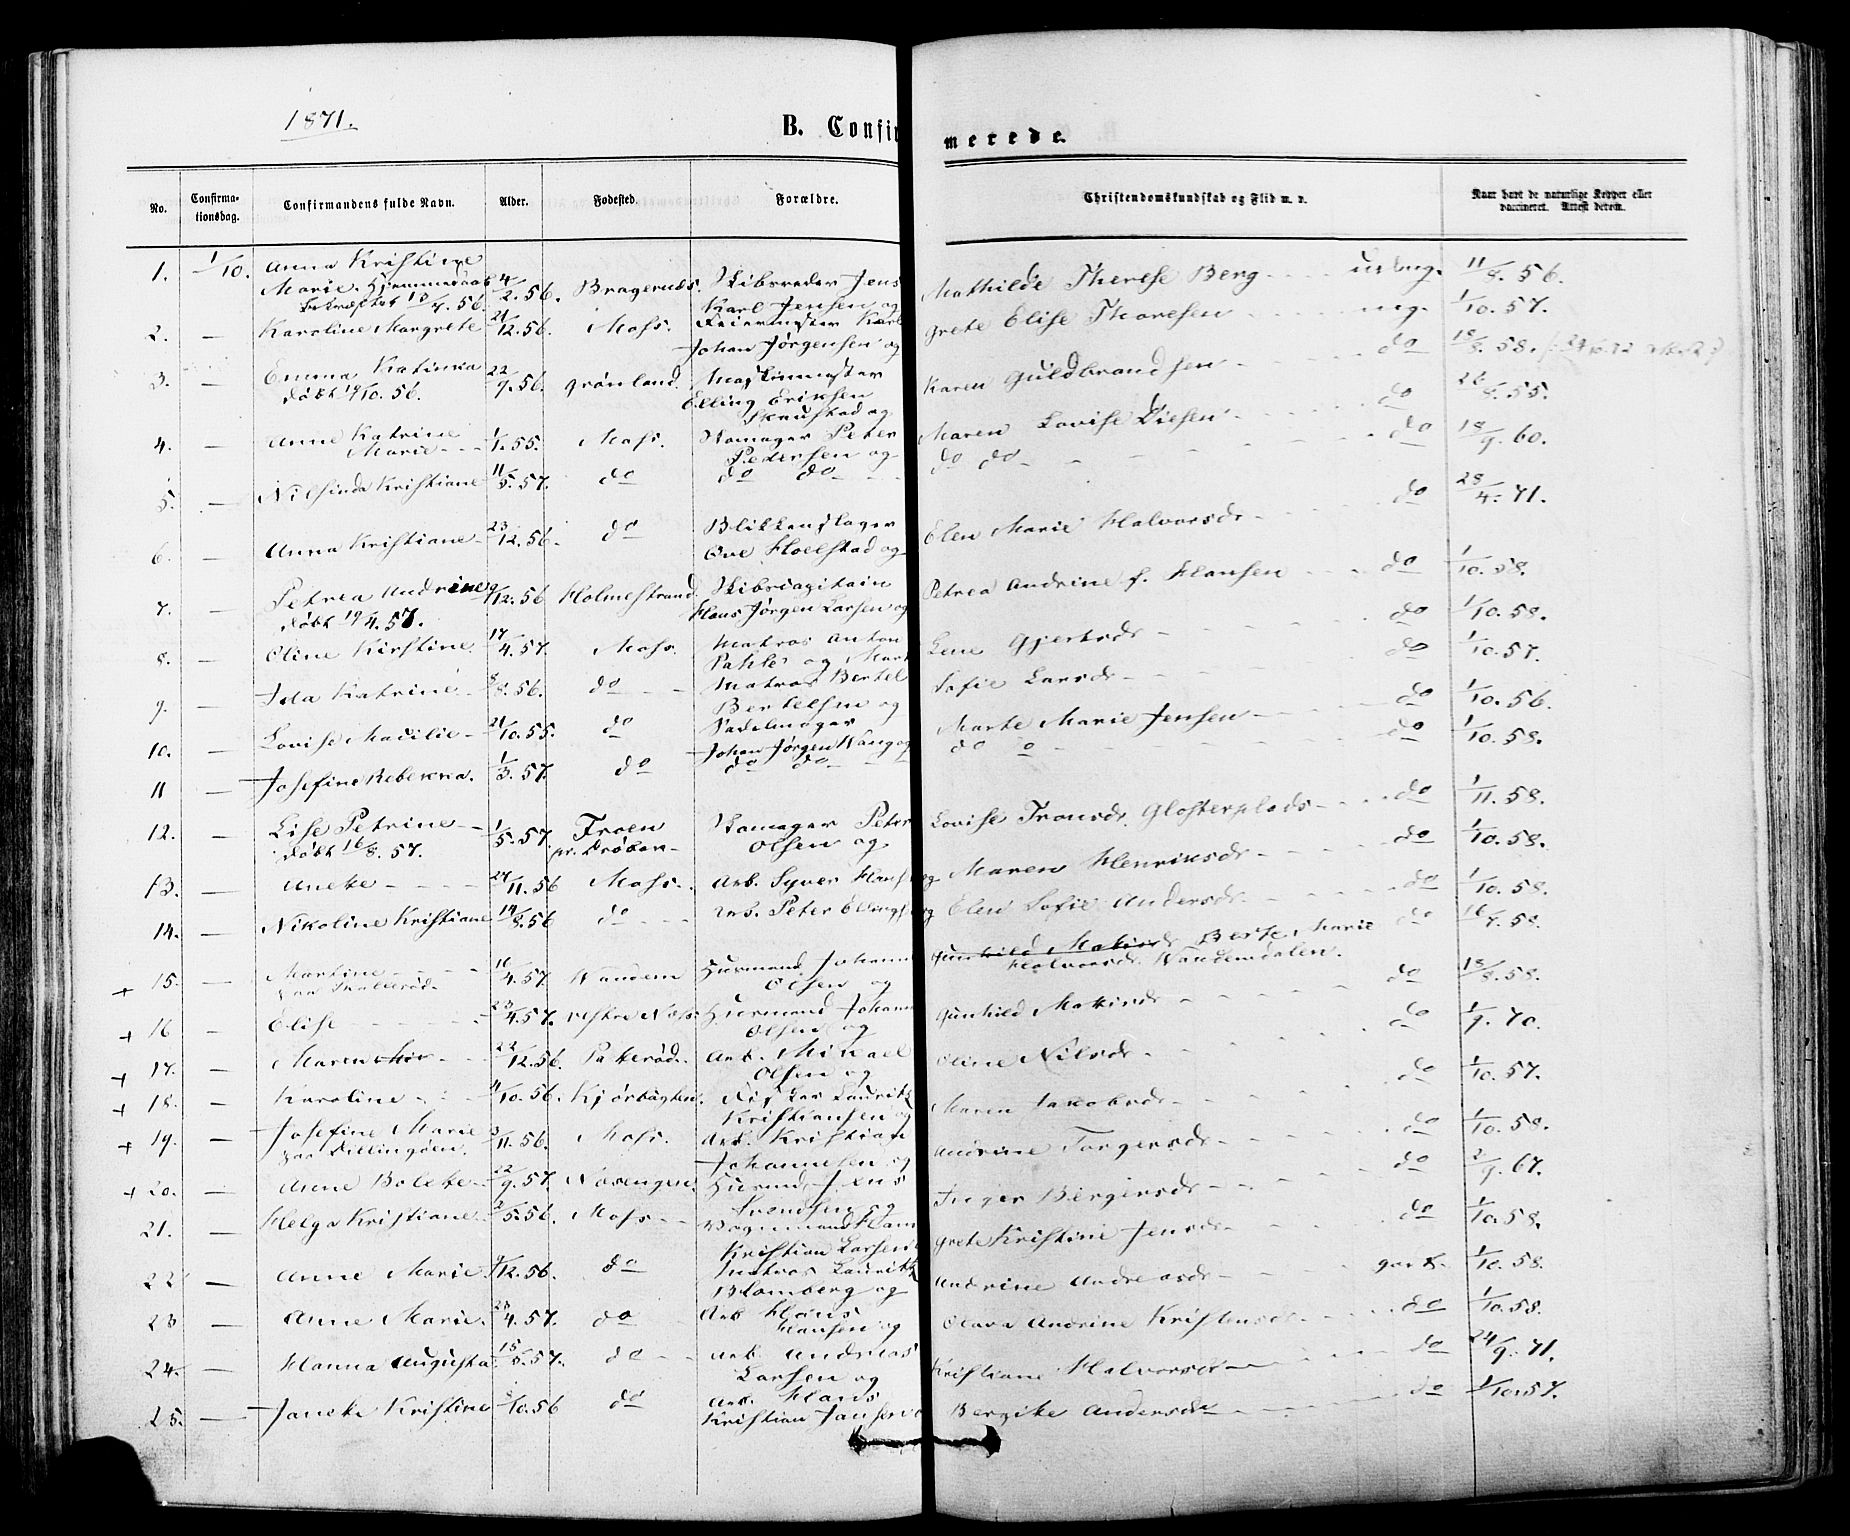 1871.
B. Confir
merede.
No.
Confirma-
tionsdag.
Confirmandens fulde Navn.
Alder.
Fødested.
Forældre.
Christendomskundskab og Flid m. v.
Naar havt de naturlige Kopper eller
vaccineret. Attest derom.
1. 1/10. Anna Kristine
Marie. Hjemmedøbt 4/2.56. Bragernæs. Skibsreder Jens Mathilde Therese Berg - - - 11/8. 56.
Karl Jensen og
2. — Karoline Margrete 21/12.56. Moss. Feiermester Karl Grete Elise Thoresen - - - mg. 1/10. 57.
Johan Jørgensen og
3. — Emma Katinka 22/9.56. Grønland. Maskinmester Karen Guldbrandsen - do 18/8. 58.
døbt 19/10. 56. Elling Eriksen
Skrustad og
4. — Anne Katrine 1/1.55. Moss. Skomager Peter Maren Lovise Diesen - do 26/8. 55.
Marie - - - Pedersen og
5. — Nilsinda Kristiane 11/5.57. do do do - - - do do - - - do 18/9. 60.
6. — Anna Kristiane - 23/12.56. do Blikkenslager Elen Marie Halvorsdr - do 28/4. 71.
Ove Hoelstad og
7. — Petrea Andrine 9/12.56 Holmestrand. Skibscapitain Petrea Andrine f. Hansen - - - do 1/10. 58.
døbt 19/4. 57. Hans Jørgen Larsen og
8. — Oline Kirstine 17/4.57. Moss. Matros Anton Lene Gjertsdr - do 1/10. 58.
9. — Ida Katrine - 8/8.56. do - - Matros Bertel Sofie Larsdr - - do 1/10. 57.
Bertelsen og
10. — Lovise Madilie - 21/10.55. do Sadelmager Marte Marie Jensen - do 1/10. 56.
Johan Jørgen Wang og
11 — Josefine Rebekka. 1/3.57. do do do - - do - - - do 1/10. 58.
12. — Lise Petrine - 1/5.57. Froen Skomager Peter Lovise Tronsdr. Glosterplads - - - do 1/11. 58.
døbt 16/8. 57. pr. Drøbak - Olsen og
13. — Aneke - - - 24/11.56 Moss. Arb. Syver Hansen og Maren Henriksdr - do 1/10. 58.
14. — Nikoline Kristiane 14/8.56 do - - - Arb. Peter Ellingsen og Elen Sofie Andersdr. - do 1/10. 58.
+ 15. — Martine - - - 16/4.57. Wandem Husmand Johannes Gunhild Mathisdr Berte Marie do 16/9. 58.
Olsen og Halvorsdr. Wandemdalen.
+ 16 — Elise - - - 23/4.57. Vestre Næs. Husmand Johan Gunhild Matisdr - - do 18/8. 58.
Olsen og
+ 17. — Maren - - 22/12.56. Paterød. Arb. Mikael Oline Nilsdr - do 1/9. 70.
Olsen og
+ 18. — Karoline - - - 4/10.56. Kjørbugten. Fisker Laurits Maren Jakobsdr - do 1/10. 57.
Kristiansen og
+ 19. — Josefine Marie 3/11.56. Moss. Arb. Kristian Andrine Torgersdr - do 1/10. 58.
Johannesen og
+ 20. — Anne Bolette - 22/9.57. Nosengen. Husmd. Jens Inger Bergersdr - - do 2/9. 67.
Svendsen og
21. — Helga Kristiane - 2/5.56. Moss - - Vognmand Hans Grete Kristine Jensdr - do 1/10. 58.
Kristian Larsen
22 — Anne Marie 4/12.56. do Matros Laurits Andrine Andreasdr - godt. 1/10. 58.
Blomberg og
23 — Anne Marie. 28/4.57. do Arb Hans Olava Andrine Kristensdr - - do 1/10. 58.
Hansen og
24. — Hanna Augusta 15/5.57. do - - Arb Andreas Kristiane Halvorsdr - do 24/9. 71.
Larsen og
25. — Janeke Kristine 5/10.56 do Arb. Hans Bergite Andersdr - - do 1/10. 57.
Kristian Jansen